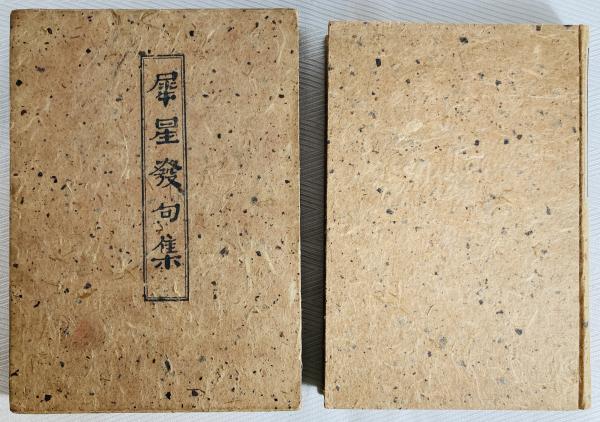 犀星發句集